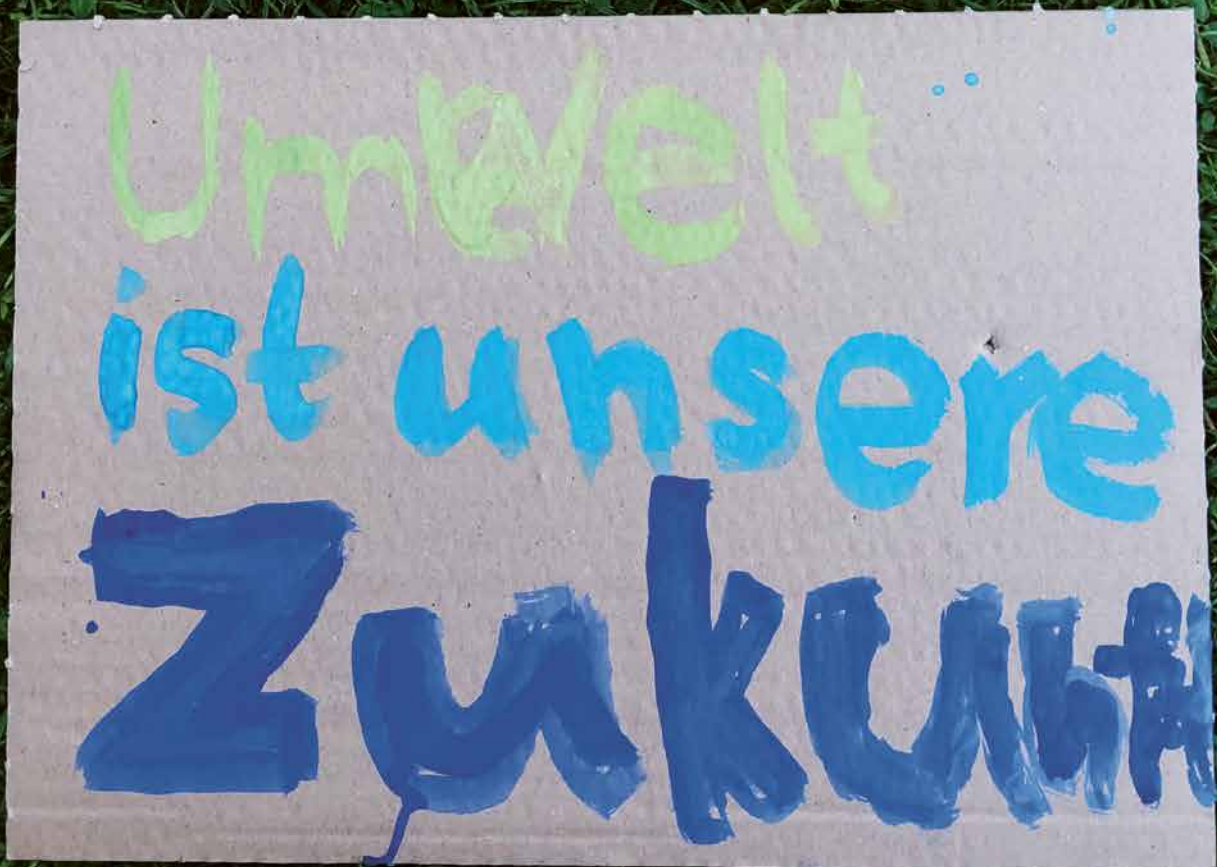 Umwelt
ist unsere
Zukunft